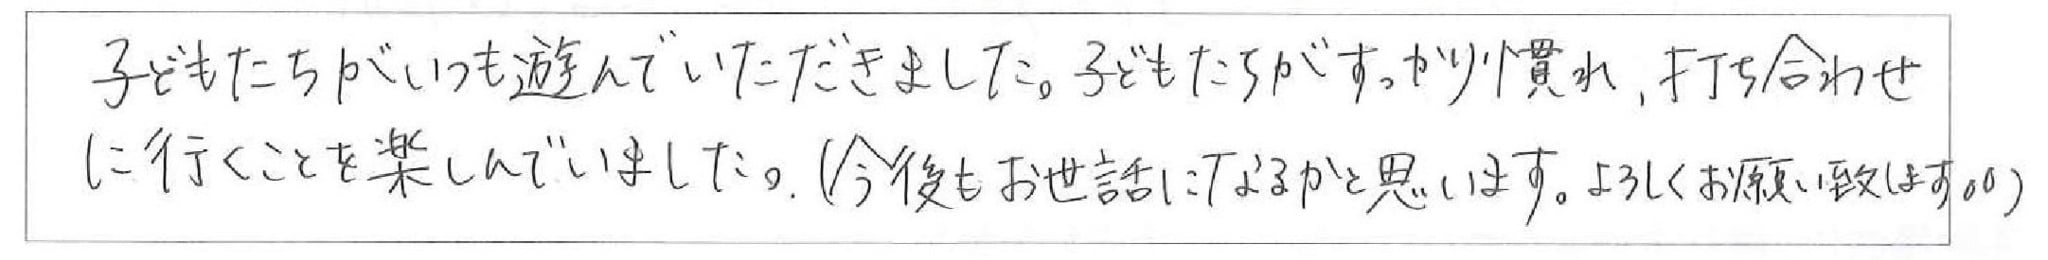 子どもたちがいつも遊んでいただきました。子どもたちがすっかり慣れ、打ち合わせ
に行くことを楽しんでいました。(今後もお世話になるかと思います。よろしくお願い致します。。)